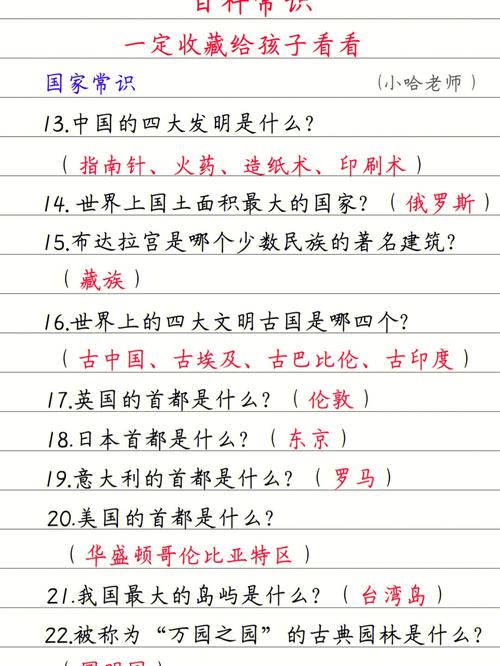 百种常识
一定收藏给孩子看看
国家常识 (小哈老师)
13.中国的四大发明是什么?
(指南针、火药、造纸术、印刷术)
14.世界上国土面积最大的国家?(俄罗斯)
15.布达拉宫是哪个少数民族的著名建筑?
(藏族)
16.世界上的四大文明古国是哪四个?
(古中国、古埃及、古巴比伦、古印度)
17.英国的首都是什么?(伦敦)
18.日本首都是什么?(东京)
19.意大利的首都是什么?(罗马)
20.美国的首都是什么?
(华盛顿哥伦比亚特区)
21.我国最大的岛屿是什么?(台湾岛)
22.被称为“万园之园”的古典园林是什么?
(圆明园)